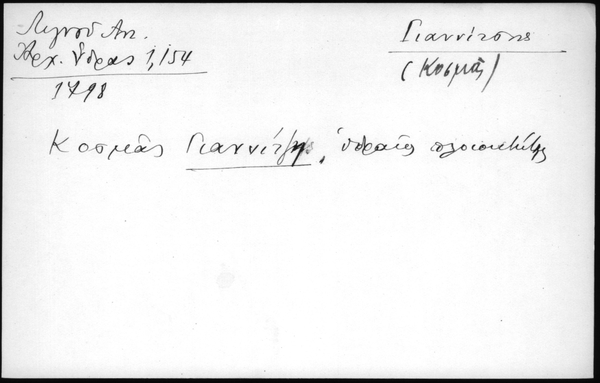 Λιγνού Αν.
Αρχ. Ύδρας 1,154
1798
Γιαννίτσης
(Κοσμάς)
Κοσμάς Γιαννίτζης, υδραίος πλοιοκτήτης